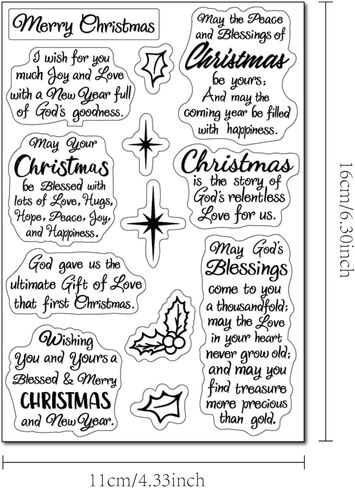 Merry Christmas
I wish for you
much Joy and Love
with a New Year full
of God's goodness.
May Your
Christmas
be Blessed with
lots of Love, Hugs,
Hope, Peace, Joy,
and Happiness.
God gave us the
ultimate Gift of Love
that first Christmas.
Wishing
You and Yours a
Blessed & Merry
CHRISTMAS
and New Year.
May the Peace
and Blessings of
Christmas
be yours;
And may the
coming year be filled
with happiness.
Christmas
is the story of
God's relentless
Love for us.
May God's
Blessings
come to you
a thousandfold;
may the Love
in your heart
never grow old;
and may you
find treasure
more precious
than gold.
16cm/6.30inch
11cm/4.33inch